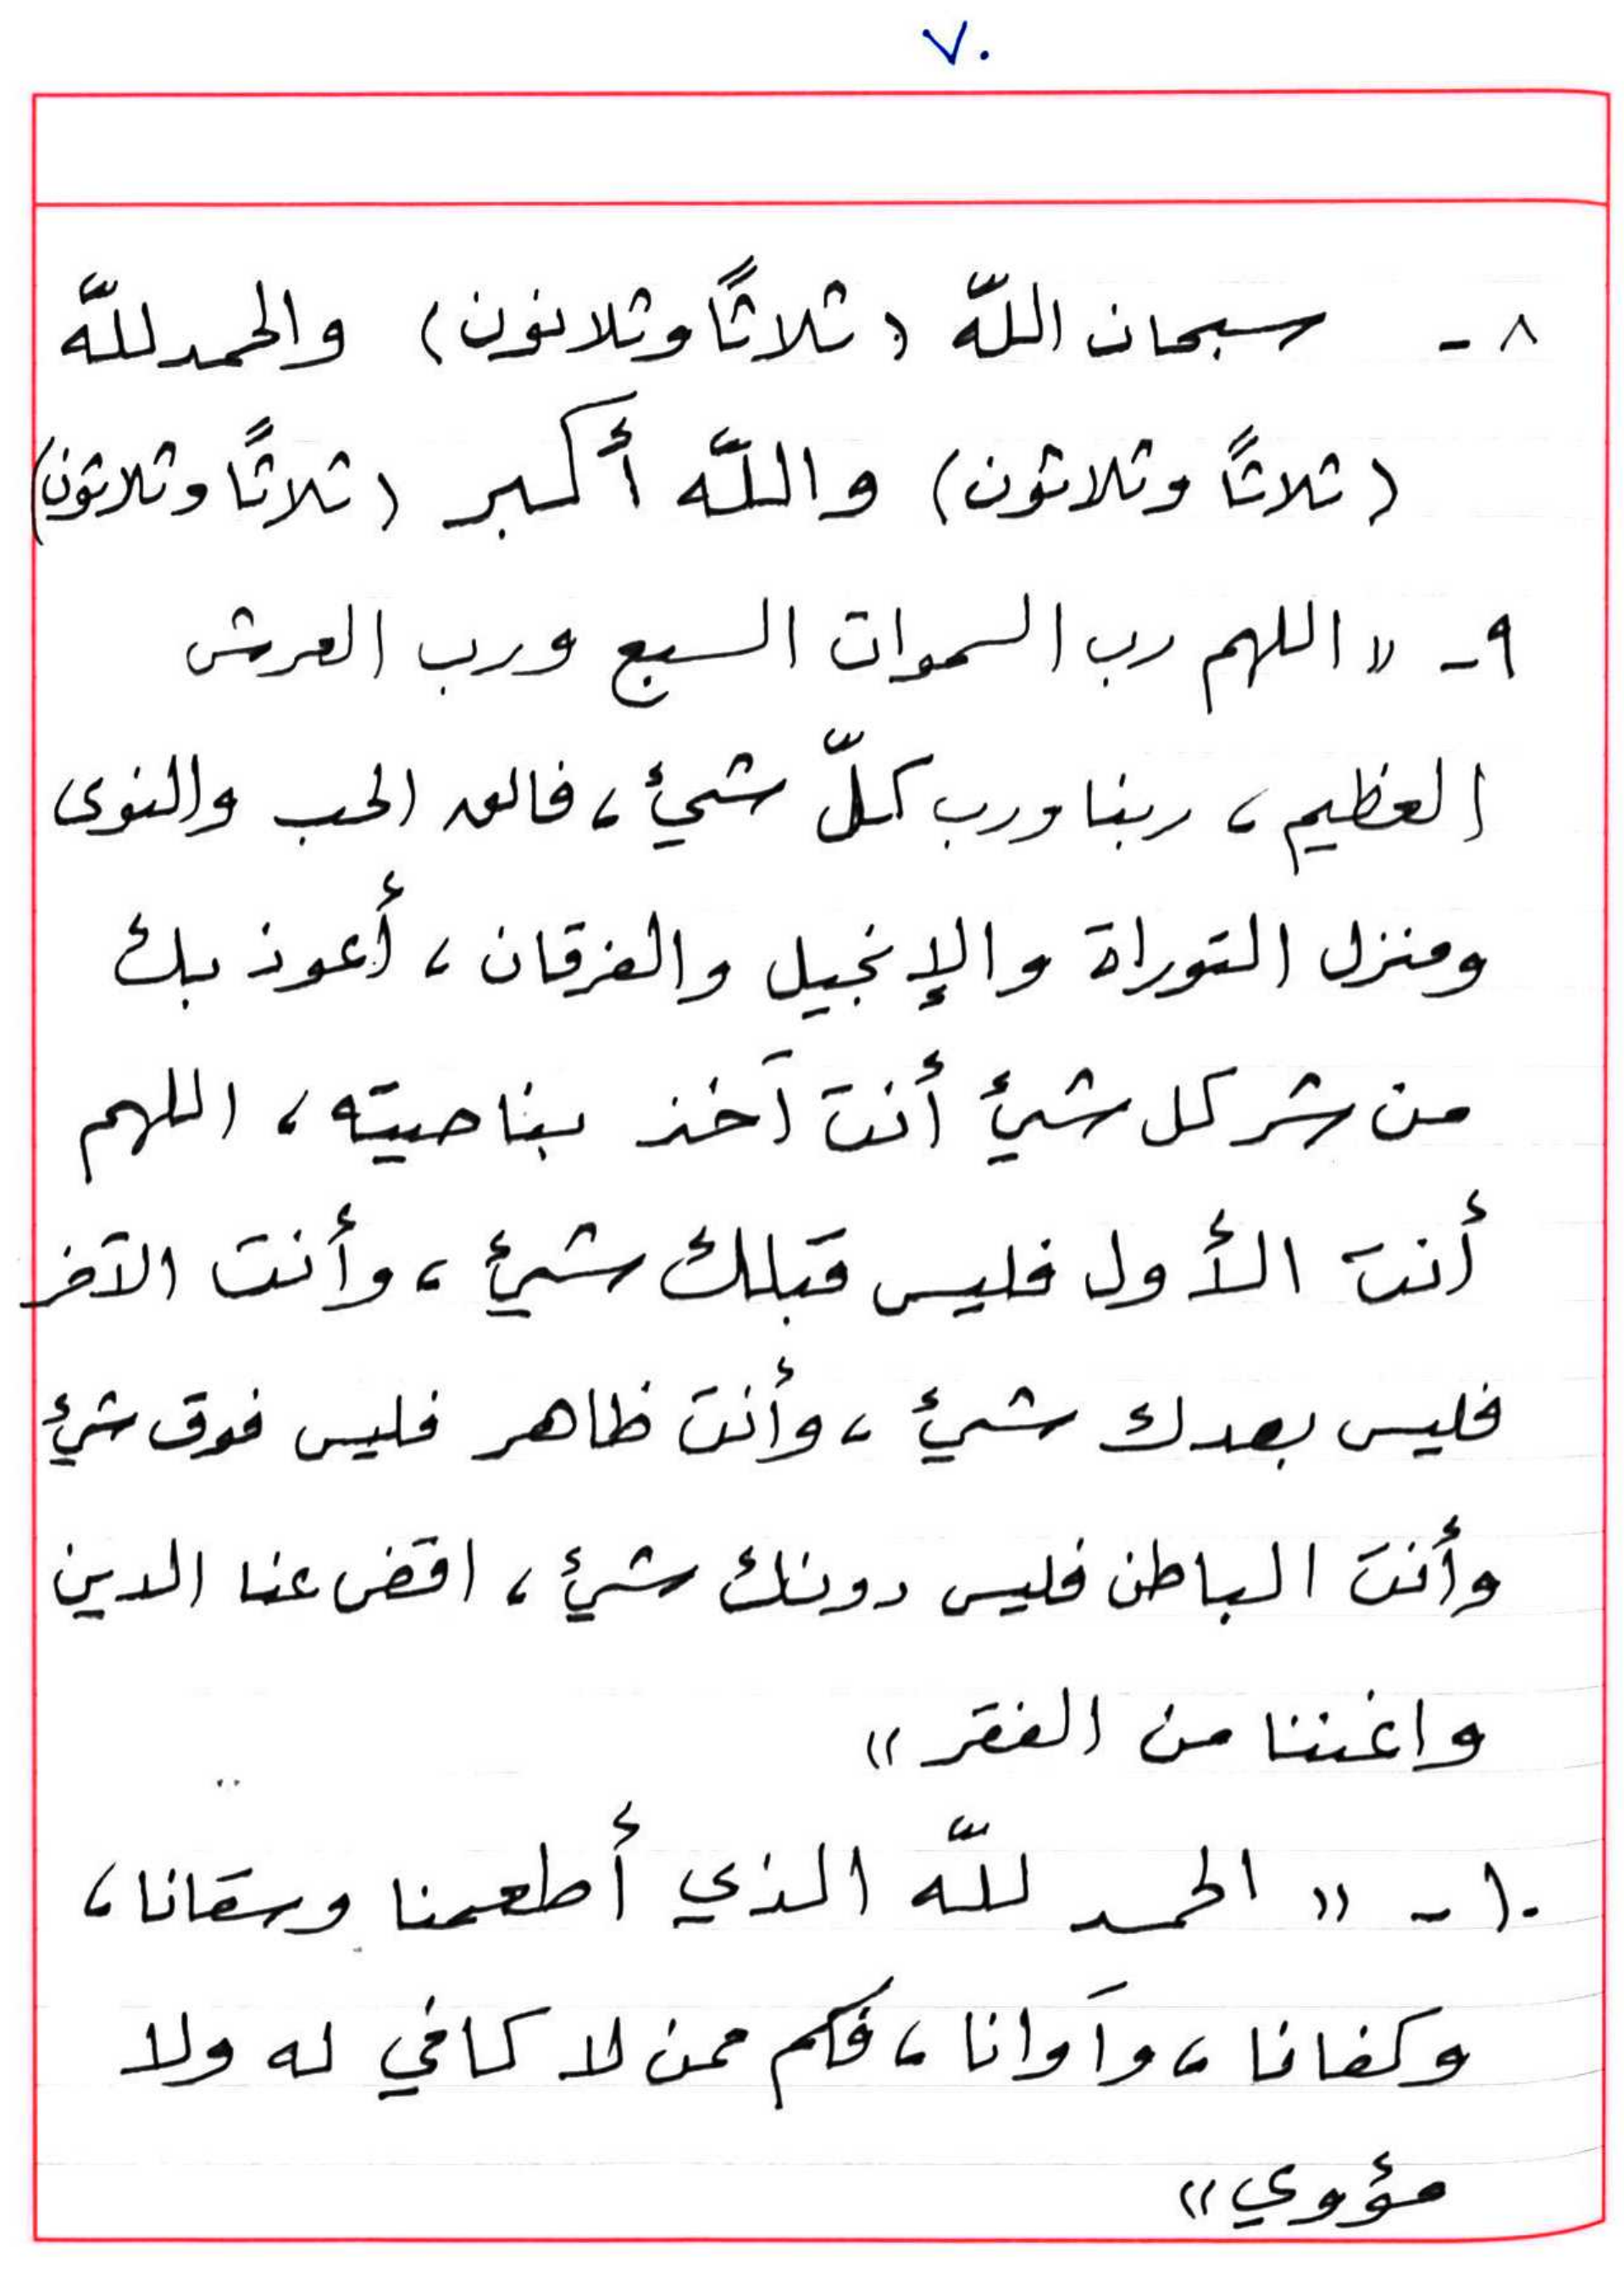 ٧٠
٨ - سبحان اللّه (ثلاثًا وثلاثون) والحمد للّه
(ثلاثًا وثلاثون) واللّه أكبر (ثلاثًا وثلاثون)
٩ - « اللهم رب السموات السبع ورب العرش
العظيم، ربنا ورب كلّ شيئ، فالق الحب والنوى
ومنزل التوراة والإنجيل والفرقان، أعوذ بك
من شر كل شيئ أنت آخذ بناصيته، اللهم
أنت الأول فليس قبلك شيئ، وأنت الآخر
فليس بعدك شيئ، وأنت ظاهر فليس فوق شيئ
وأنت الباطن فليس دونك شيئ، اقض عنا الدين
واغننا من الفقر »
١٠ - « الحمد للّه الذي أطعمنا وسقانا،
وكفانا، وآوانا، فكم ممن لا كافي له ولا
مؤوي »